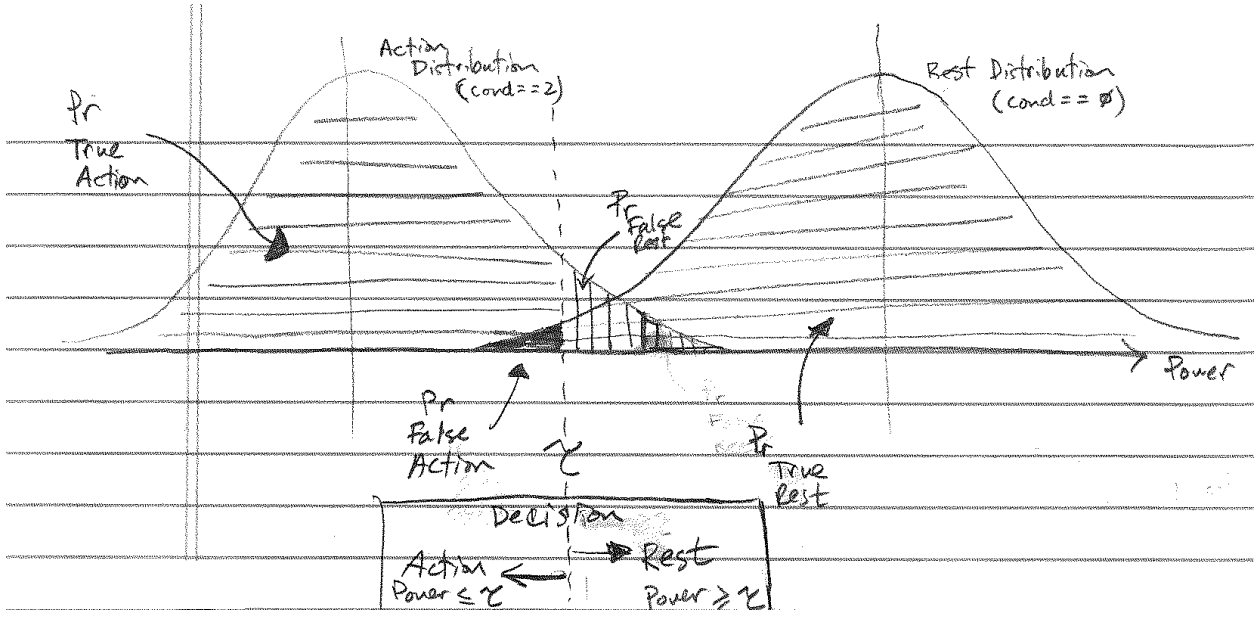 Action
Distribution
(cond==2)
Rest Distribution
(cond==∅)
Pr
True
Action
Pr
False
Rest
Power
Pr
False
Action
τ
Pr
True
Rest
Decision
Action
Power ≤ τ
Rest
Power ≥ τ